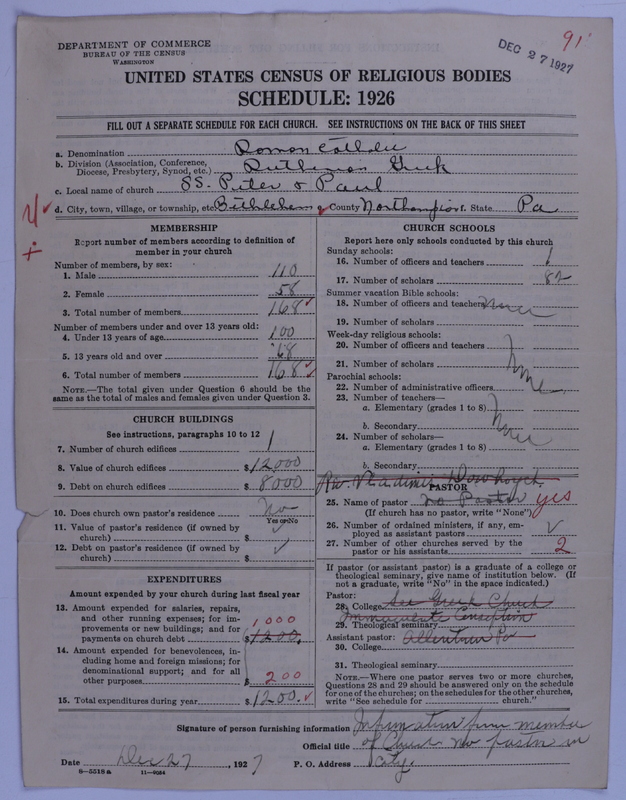 DEPARTMENT OF COMMERCE
BUREAU OF THE CENSUS
WASHINGTON
DEC 27 1927
91
UNITED STATES CENSUS OF RELIGIOUS BODIES
SCHEDULE: 1926
FILL OUT A SEPARATE SCHEDULE FOR EACH CHURCH. SEE INSTRUCTIONS ON THE BACK OF THIS SHEET
a. Denomination Roman Catholic
b. Division (Association, Conference, Diocese, Presbytery, Synod, etc.) Ruthenian Greek
c. Local name of church SS. Peter & Paul
d. City, town, village, or township, etc. Bethlehem County Northampton State Pa
MEMBERSHIP
Report number of members according to definition of
member in your church
Number of members, by sex:
1. Male 110
2. Female 58
3. Total number of members 168
Number of members under and over 13 years old:
4. Under 13 years of age 100
5. 13 years old and over 68
6. Total number of members 168
NOTE.—The total given under Question 6 should be
same as the total of males and females given under Question 3.
CHURCH BUILDINGS
See instructions, paragraphs 10 to 12
7. Number of church edifices 1
8. Value of church edifices $12000
9. Debt on church edifices $8000
10. Does church own pastor's residence No
Yes or No
11. Value of pastor's residence (if owned by
church) $
12. Debt on pastor's residence (if owned by
church) $
EXPENDITURES
Amount expended by your church during last fiscal year
13. Amount expended for salaries, repairs,
and other running expenses; for im-
provements or new buildings; and for 1000
payments on church debt $1200.
14. Amount expended for benevolences, in-
cluding home and foreign missions; for
denominational support; and for all
other purposes $ 200
15. Total expenditures during year $1200.
CHURCH SCHOOLS
Report here only schools conducted by this church
Sunday schools:
16. Number of officers and teachers 1
17. Number of scholars 82
Summer vacation Bible schools:
18. Number of officers and teachers none
19. Number of scholars
Week-day religious schools:
20. Number of officers and teachers
21. Number of scholars none
Parochial schools:
22. Number of administrative officers
23. Number of teachers—
a. Elementary (grades 1 to 8)
b. Secondary none
24. Number of scholars—
a. Elementary (grades 1 to 8)
b. Secondary
Rev. Vladimir
PASTOR
25. Name of pastor No Pastor yes
(If church has no pastor, write "None")
26. Number of ordained ministers, if any, em-
ployed as assistant pastors
27. Number of other churches served by the
pastor or his assistants 2
If pastor (or assistant pastor) is a graduate of a college or
theological seminary, give name of institution below. (If
not a graduate, write "No" in the space indicated.)
Pastor:
28. College See Greek Church
Immaculate Conception
29. Theological seminary
Assistant pastor: Allentown Pa
30. College
31. Theological seminary
NOTE.—Where one pastor serves two or more churches,
Questions 28 and 29 should be answered only on the schedule
for one of the churches; on the schedules for the other churches,
write "See schedule for church."
Signature of person furnishing information Information from member
Official title of Church No pastor in
Date Dec 27, 1927 P. O. Address City
8—5518a 11—9034